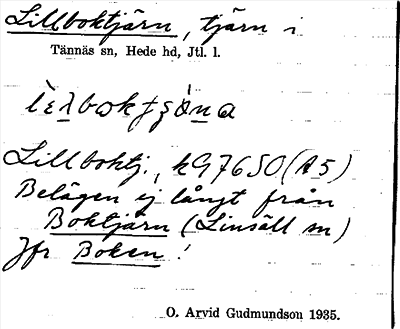 Lillboktjärn, tjärn i
Tännäs sn, Hede hd, Jtl. l.
Lillboktj., k97650 (A5)
Belägen ej långt från
Boktjärn (Linsäll sn)
Jfr Boken!
O. Arvid Gudmundson 1935.